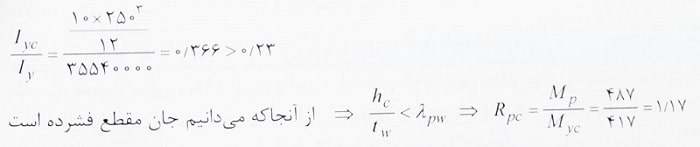 I_yc / I_y = ((۱۰×۲۵۰^۳) / ۱۲) / ۳۵۵۴۰۰۰۰ = ۰/۳۶۶ > ۰/۲۳
از آنجاکه می‌دانیم جان مقطع فشرده است ⇒ h_c / t_w < λ_pw ⇒ R_pc = M_p / M_yc = ۴۸۷ / ۴۱۷ = ۱/۱۷